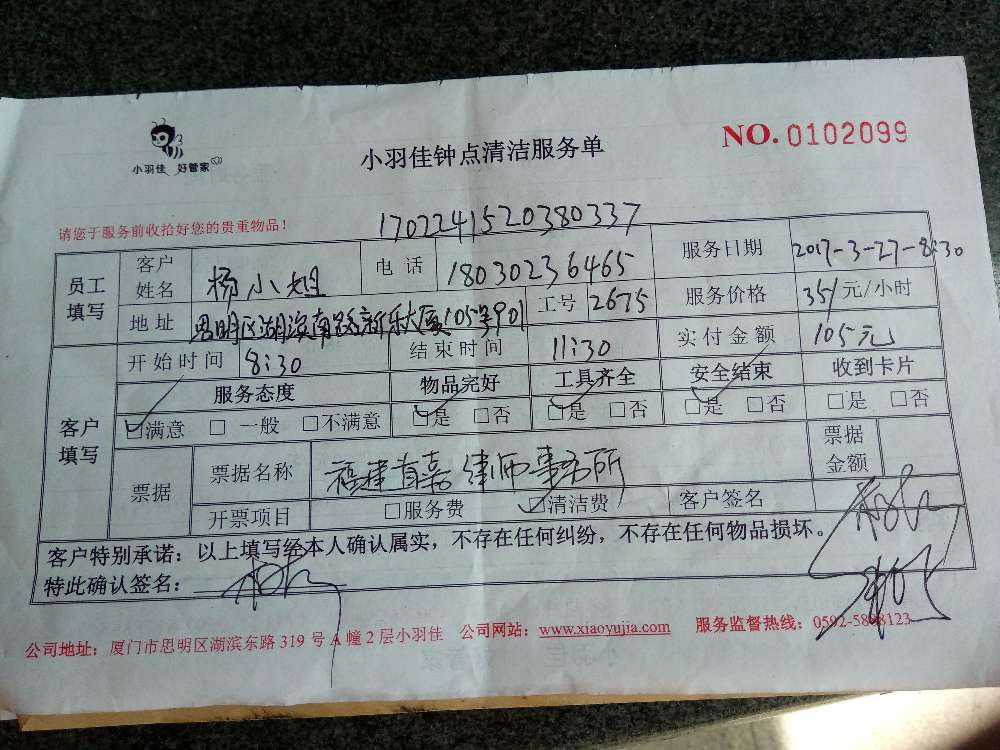 小羽佳 好管家
小羽佳钟点清洁服务单
NO. 0102099
请您于服务前收拾好您的贵重物品！
170224152038033​7
员工填写 客户姓名 杨小姐 电话 18030236465 服务日期 2017-3-27-8:30
地址 思明区湖滨南路新乐大厦105号901 工号 2675 服务价格 35/元/小时
开始时间 8:30 结束时间 11:30 实付金额 105元
客户填写 服务态度 物品完好 工具齐全 安全结束 收到卡片
☑满意 □一般 □不满意 ☑是 □否 ☑是 □否 ☑是 □否 □是 □否
票据 票据名称 福建首嘉律师事务所 票据金额
开票项目 □服务费 ☑清洁费 客户签名
客户特别承诺：以上填写经本人确认属实，不存在任何纠纷，不存在任何物品损坏。
特此确认签名：
公司地址：厦门市思明区湖滨东路 319 号 A 幢 2 层小羽佳 公司网站：www.xiaoyujia.com 服务监督热线：